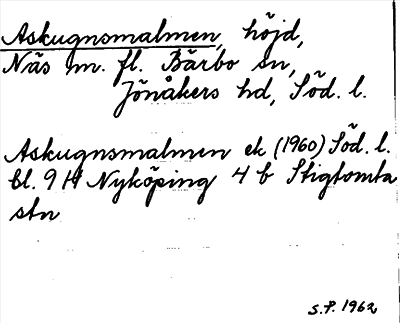 Askugnsmalmen, höjd,
Näs m. fl. Bärbo sn,
Jönåkers hd, Söd. l.
Askugnsmalmen ek (1960) Söd. l.
bl. 9 H Nyköping 4 b Stigtomta
stn
S.P. 1962